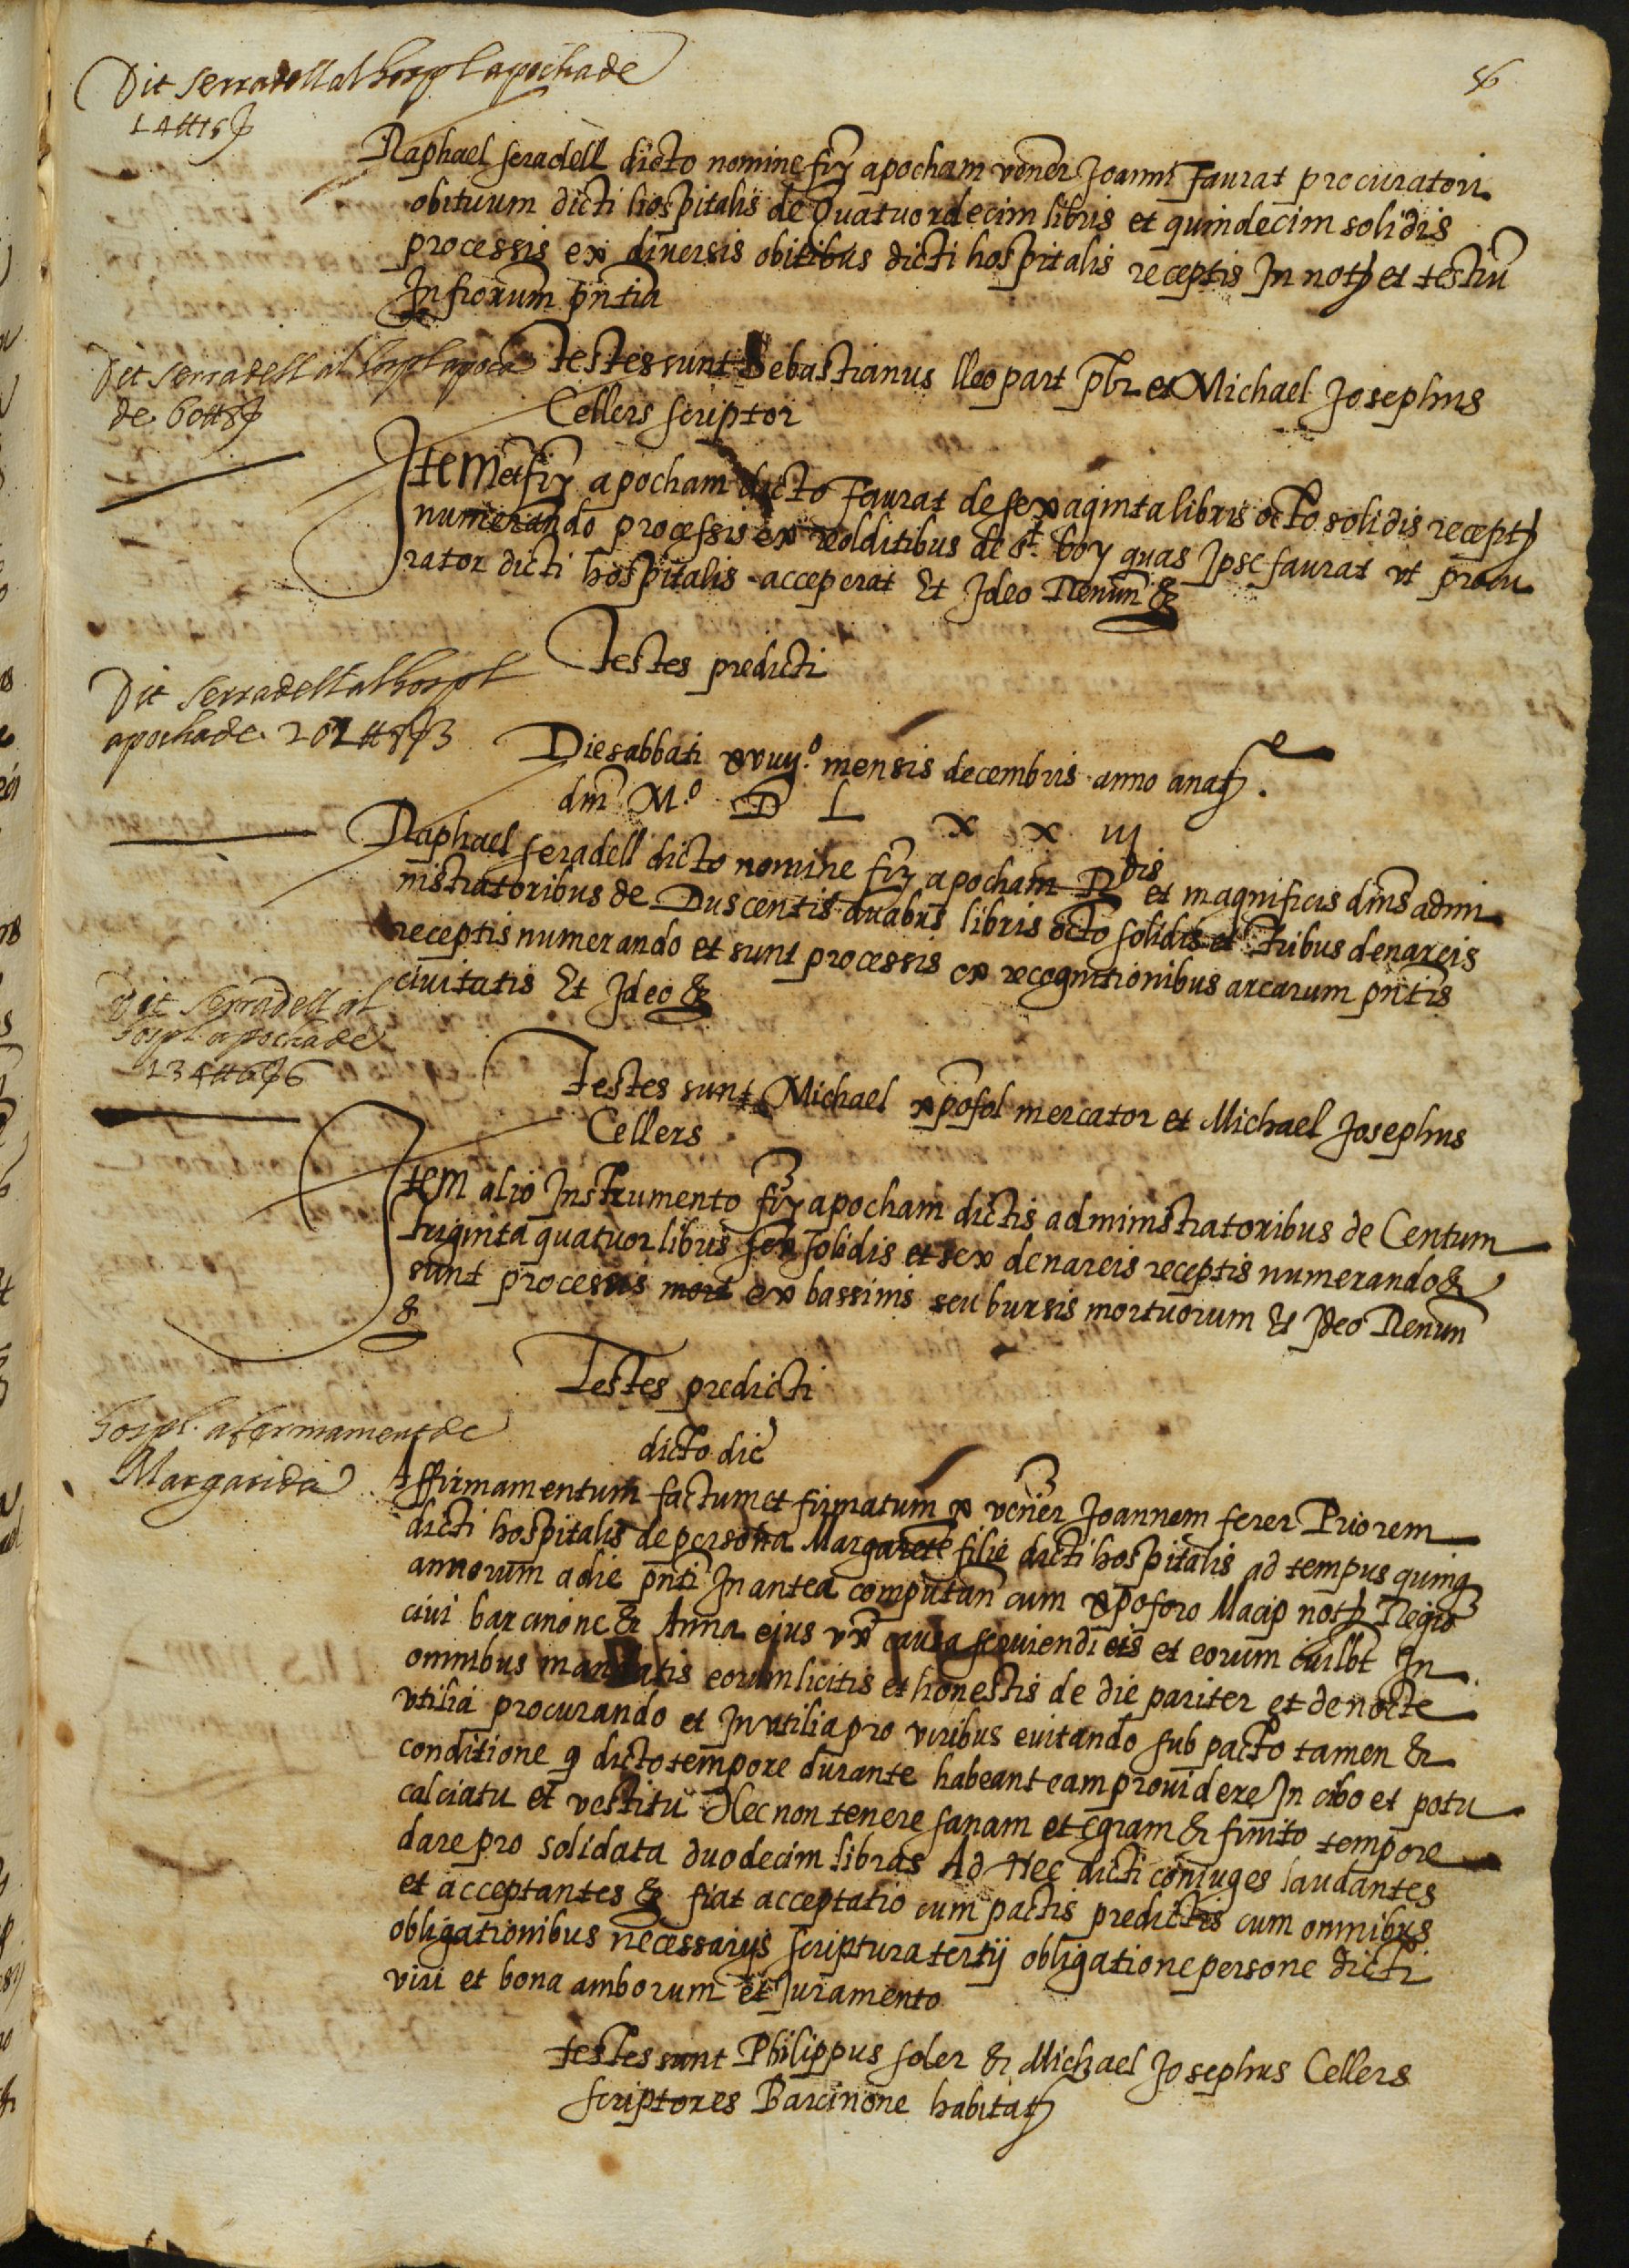 Dit Serradell al hospl apocha de
14 ₶ 15 ẜ
Raphael seradell dicto nomine fir apocham vener Joanni Faurat procuratori
obituum dicti hospitalis de Quatuordecim libris et quindecim solidis
processis ex diuersis obitibus dicti hospitalis receptis In not et testiu
Infrorum pntia
Dit Serradell al hospl apoca
de 60 ₶ 8 ẜ
Testes sunt Sebastianus lleopart pbr et Michael Josephus
Cellers scriptor
Item et fir apocham dicto Faurat de sexaginta libris octo solidis recept
numerando processis ex redditibus de st. boy quas Ipse faurat vt procu
rator dicti hospitalis acceperat Et Ideo Renun &
Testes predicti
Dit Serradell al hospl
apocha de 202 ₶ 8 ẜ 3
Die sabbati xviiij.o mensis decembris anno anate.
dni M.o D L x x iij
Raphael seradell dicto nomine fir apocham Rdis et magnificis dnis admi
nistratoribus de Duscentis duabus libris octo solidis et Tribus denareis
receptis numerando et sunt processis ex recognitionibus arcarum pntis
ciuitatis Et Ideo &
Dit Serradell al
hospl apocha de
134 ₶ 6 ẜ 6
Testes sunt Michael xpofol mercator et Michael Josephus
Cellers
Item alio Instrumento fir apocham dictis administratoribus de Centum
triginta quatuor libris sex solidis et sex denareis receptis numerando &
sunt processis mort ex bassinis seu bursis mortuorum Et Ideo Renun
&
Testes predicti
dicto die
hospl. afermament de
Margarida
Affirmamentum factum et firmatum p vener Joannem ferer Priorem
dicti hospitalis de persona Margarete filie dicti hospitalis ad tempus quinq
annorum a die pnti In antea computan cum xpoforo Macip not Regio
ciui barcinone & Anna ejus vx causa seruiendi eis et eorum cuilbt In
omnibus mandatis eorum licitis et honestis de die pariter et de nocte
vtilia procurando et Inutilia pro viribus euitando sub pacto tamen &
conditione q dicto tempore durante habeant eam prouidere In cibo et potu
calciatu et vestitu Nec non tenere sanam et egram & finito tempore
dare pro solidata duodecim libras Ad Hec dicti coniuges laudantes
et acceptantes & fiat acceptatio cum pactis predictis cum omnibus
obligationibus necessarijs scriptura tertij obligatione persone dicti
viri et bona amborum et Juramento
testes sunt Philippus soler & Michael Josephus Cellers
scriptores Barcinone habitat